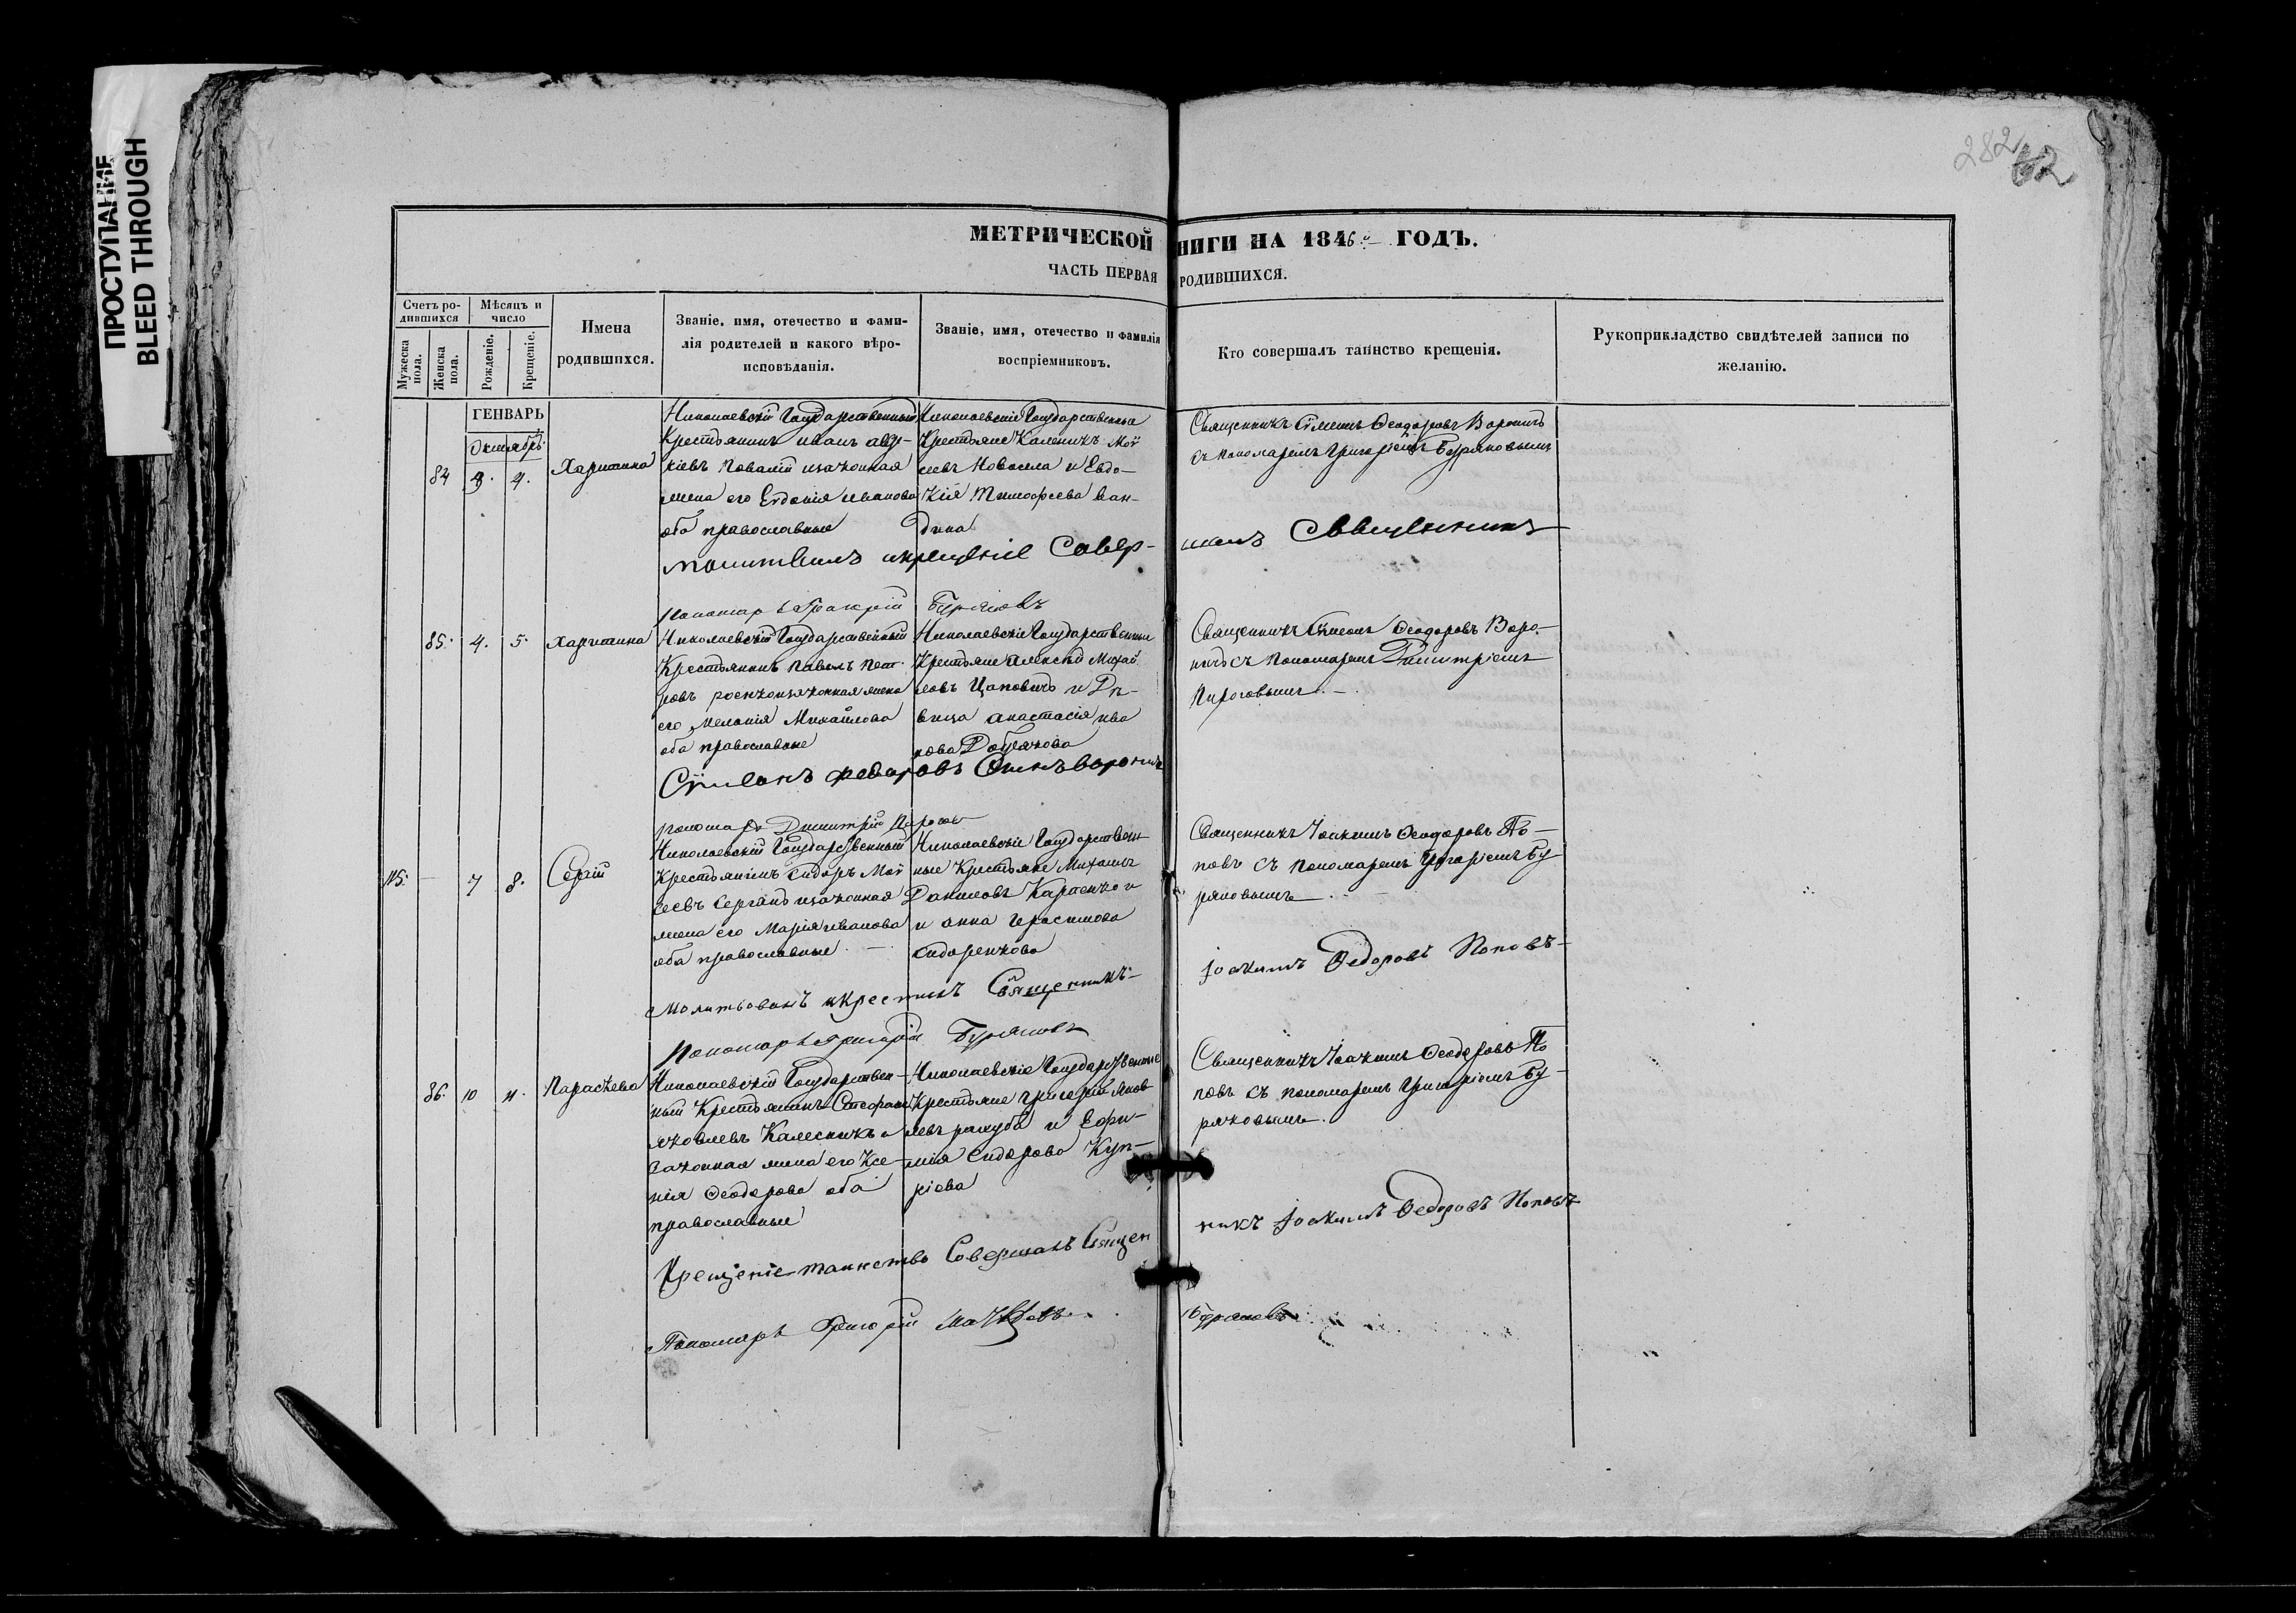 ПРОСТУПАНИЕ
BLEED THROUGH
282
62
МЕТРИЧЕСКОЙ НИГИ НА 1846 ГОДЪ.
ЧАСТЬ ПЕРВАЯ РОДИВШИХСЯ.
Счетъ ро-
дившихся
Мѣсяцъ и
число
Мужеска
пола.
Женска
пола.
Рожденіе.
Крещеніе.
Имена
родившихся.
Званіе, имя, отечество и фами-
лія родителей и какого вѣро-
исповѣданія.
Званіе, имя, отечество и фамилія
воспріемниковъ.
Кто совершалъ таинство крещенія.
Рукоприкладство свидѣтелей записи по
желанію.
ГЕНВАРЬ
Октябрь
84 3. 4. Харитина
Николаевскій Государственный
Крестьянинъ Иванъ
кіевъ изаконная
жена его Евдокія Иванова
оба православные
Николаевскіе Государственные
Крестьяне Каленикъ Мой
сеевъ Новосела и Евдо-
кія Тимофеева Бан-
дина
Священникъ Сѵмеонъ Ѳеодоровъ Вороничь
съ Пономаремъ Григоріемъ Буряковымъ
молитвилъ икрещеніе Совер-
шилъ Священникъ
Пономарь Григорій Буряковъ
85. 4. 5. Харитина
Николаевскій Государственный
Крестьянинъ Павелъ Пет-
ровъ изаконная жена
его Меланія Михайлова
оба православные
Николаевскіе Государственные
Крестьяне Алексѣй Михай
ловъ Цаповичь и Дѣ-
вица Анастасія Ива
нова
Священникъ Сѵмеонъ Ѳеодоровъ Воро-
ничь съ Пономаремъ Димитріемъ
Пироговымъ.
Сѵмеонъ Федоровъ Сынъ Вороничь
Пономарь Димитрій Пирогов
115. — 7 8. Сергій
Николаевскій Государственный
Крестьянинъ Сидоръ Мой
сеевъ изаконная
жена его Марія Иванова
оба православные
Николаевскіе Государствен-
ные Крестьяне Михаилъ
Даниловъ Карпенко и
и Анна Герасимова
Сидоренкова
Священникъ Іоакимъ Ѳеодоровъ По-
повъ съ Пономаремъ Григоріемъ Бу
ряковымъ
Молитвовалъ икрестилъ Священникъ
Іоакимъ Федоровъ Поповъ
Пономарь Григорій Буряковъ
86. 10 11. Параскева
Николаевскій Государствен-
ный Крестьянинъ Стефанъ
Яковлевъ Калесникъ и
Законная жена его Ксе-
нія Ѳеодорова оба
православные
Николаевскіе Государственные
Крестьяне Григорій Яков
левъ и Ефи-
мія Сидорова Куп-
ріева
Священникъ Іоакимъ Ѳеодоровъ По
повъ съ пономаремъ Григоріемъ Бу-
ряковымъ.
Крещеніе таинство Совершалъ Священ
никъ Іоакимъ Федоровъ Поповъ
Пономарь Григорій
Буряковъ